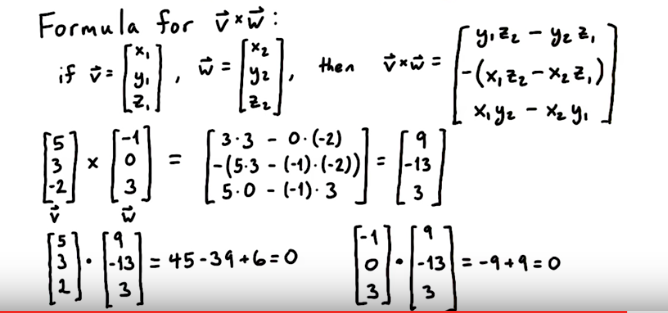 Formula for v⃗×w⃗:
if v⃗ = [x₁ y₁ z₁], w⃗ = [x₂ y₂ z₂], then v⃗×w⃗ = [y₁z₂ − y₂z₁
−(x₁z₂−x₂z₁)
x₁y₂ − x₂y₁]
[5 3 -2] × [-1 0 3] = [3·3 − 0·(-2)
−(5·3 − (-1)·(-2))
5·0 − (-1)·3] = [9 -13 3]
v⃗ w⃗
[5 3 2] · [9 -13 3] = 45-39+6=0
[-1 0 3] · [9 -13 3] = -9+9=0